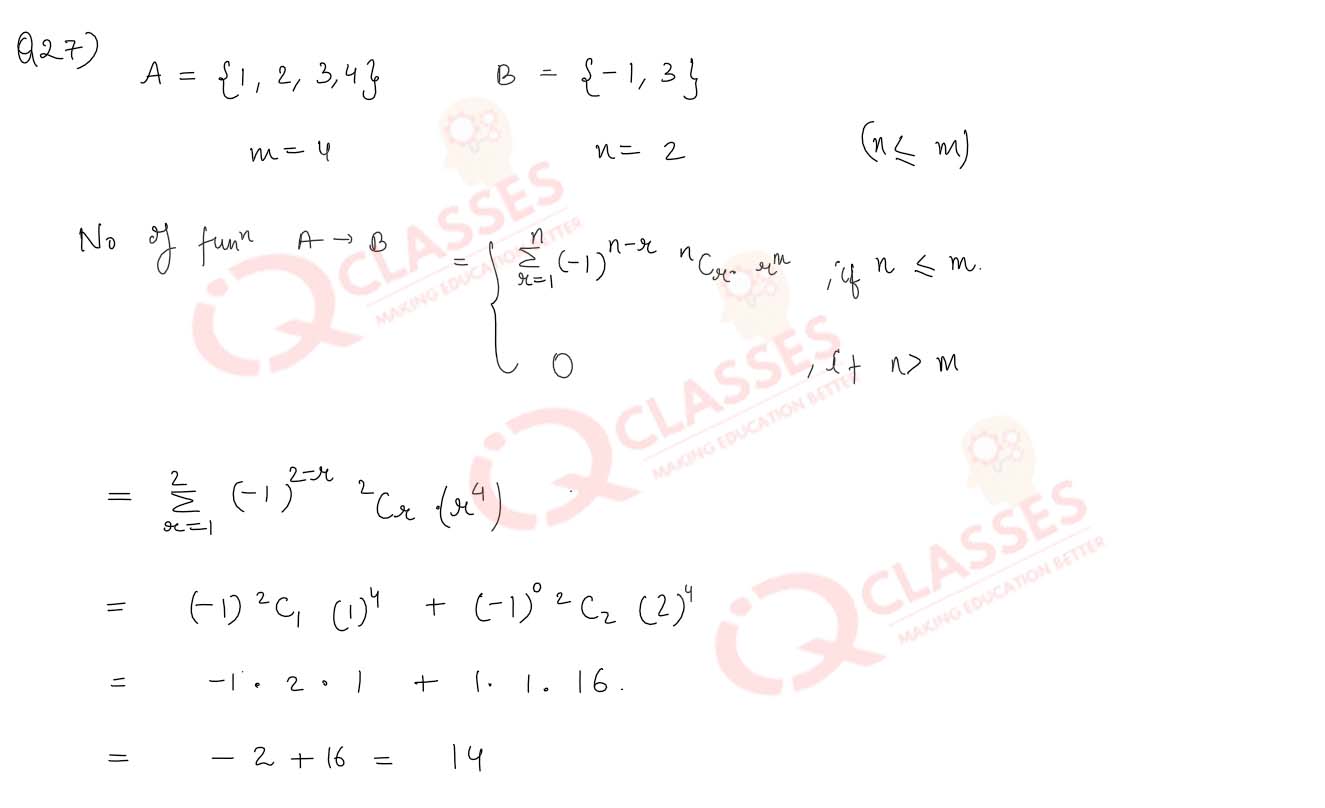 Q27)
A = {1, 2, 3, 4} B = {-1, 3}
m = 4 n = 2 (n ≤ m)
No of funⁿ A → B = { ∑ₙ r=1 (-1)ⁿ⁻ʳ ⁿCr. rᵐ , if n ≤ m.
0 , if n > m
= ∑² r=1 (-1)²⁻ʳ ²Cr · (r⁴)
= (-1) ²C₁ (1)⁴ + (-1)⁰ ²C₂ (2)⁴
= -1 . 2 . 1 + 1 . 1 . 16 .
= - 2 + 16 = 14
QCLASSES
MAKING EDUCATION BETTER
QCLASSES
MAKING EDUCATION BETTER
QCLASSES
MAKING EDUCATION BETTER